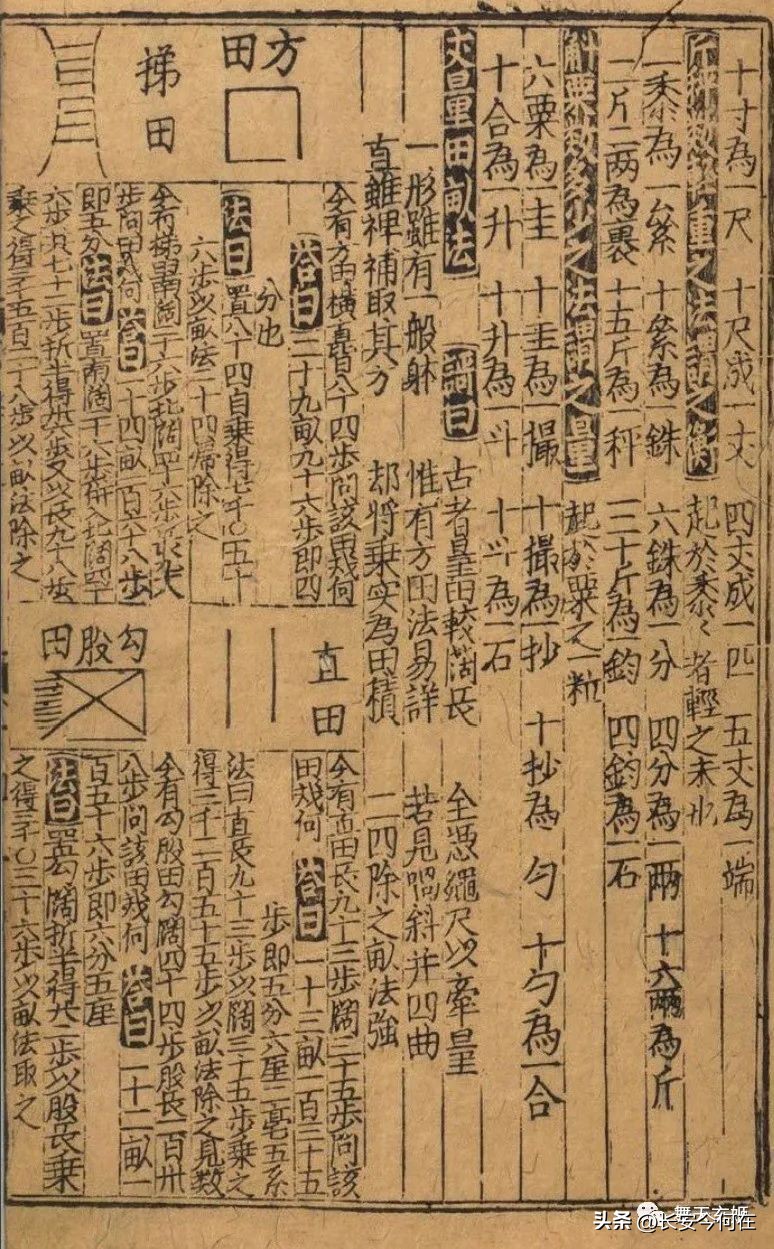 十寸為一尺 十尺成一丈 四丈成一匹 五丈為一端
斤秤數輕重之法謂之衡 起於黍々者輕之末也
一黍為一絫 十絫為一銖 六銖為一分 四分為一兩 十六兩為斤
二斤二兩為裹 十五斤為一秤 三十斤為一鈞 四鈞為一石
斛粟數多少之法謂之量 起於粟之一粒
六粟為一圭 十圭為一撮 十撮為一抄 十抄為一勺 十勺為一合
十合為一升 十升為一斗 十斗為一石
丈量田畝法 詩曰 古者量田較闊長 全憑繩尺以牽量
一形雖有一般躰 惟有方田法易詳 若見喎斜并凹曲
直雖裨補取其方 却將乘实為田積 二四除之畝法強
方田
今有方田橫直皆八十四步問該田幾何
答曰 二十九畝九十六步即四
分也
法曰 置八十四自乘得七千〇五十
六步以畝法二十四歸除之
梯田
今有梯田南闊二十六步北闊四十六步長九八
步問田幾何 答曰 一十四畝一百六十八步
即五分 法曰 置南闊二十六步併入北闊四十
六步共七十二步折半得卅六步又以長九十八步
乘之得三千五百二十八步以畝法除之
直田
今有直田長九十三步闊三十五步問該
田幾何 答曰 一十三畝一百三十五
步即五分六厘二毫五系
法曰直長九十三步以闊三十五步乘之
得三千二百五十五步以畝法除之見數
勾股田
今有勾股田勾闊四十四步股長一百卅
八步問該田幾何 答曰 一十二畝一
百五十六步即六分五厘
法曰 置勾闊折半得廿二步以股長乘
之得三千〇三十六步以畝法取之
头条 @长安今何在
舞天玄姬